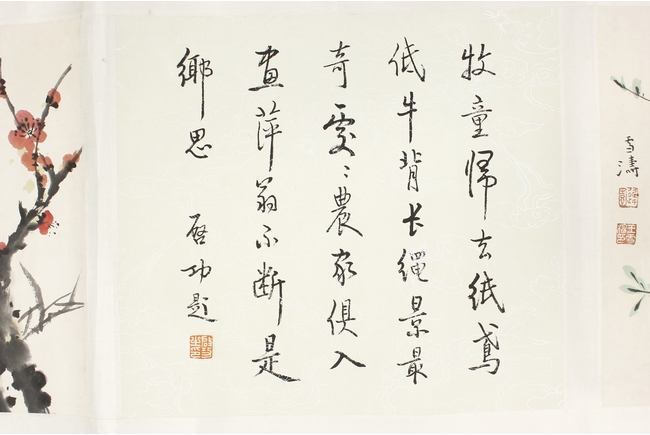 雪濤
牧童歸去紙鳶
低牛背长繩景最
奇處々農家俱入
畫萍翁不斷是
鄉思
啓功題